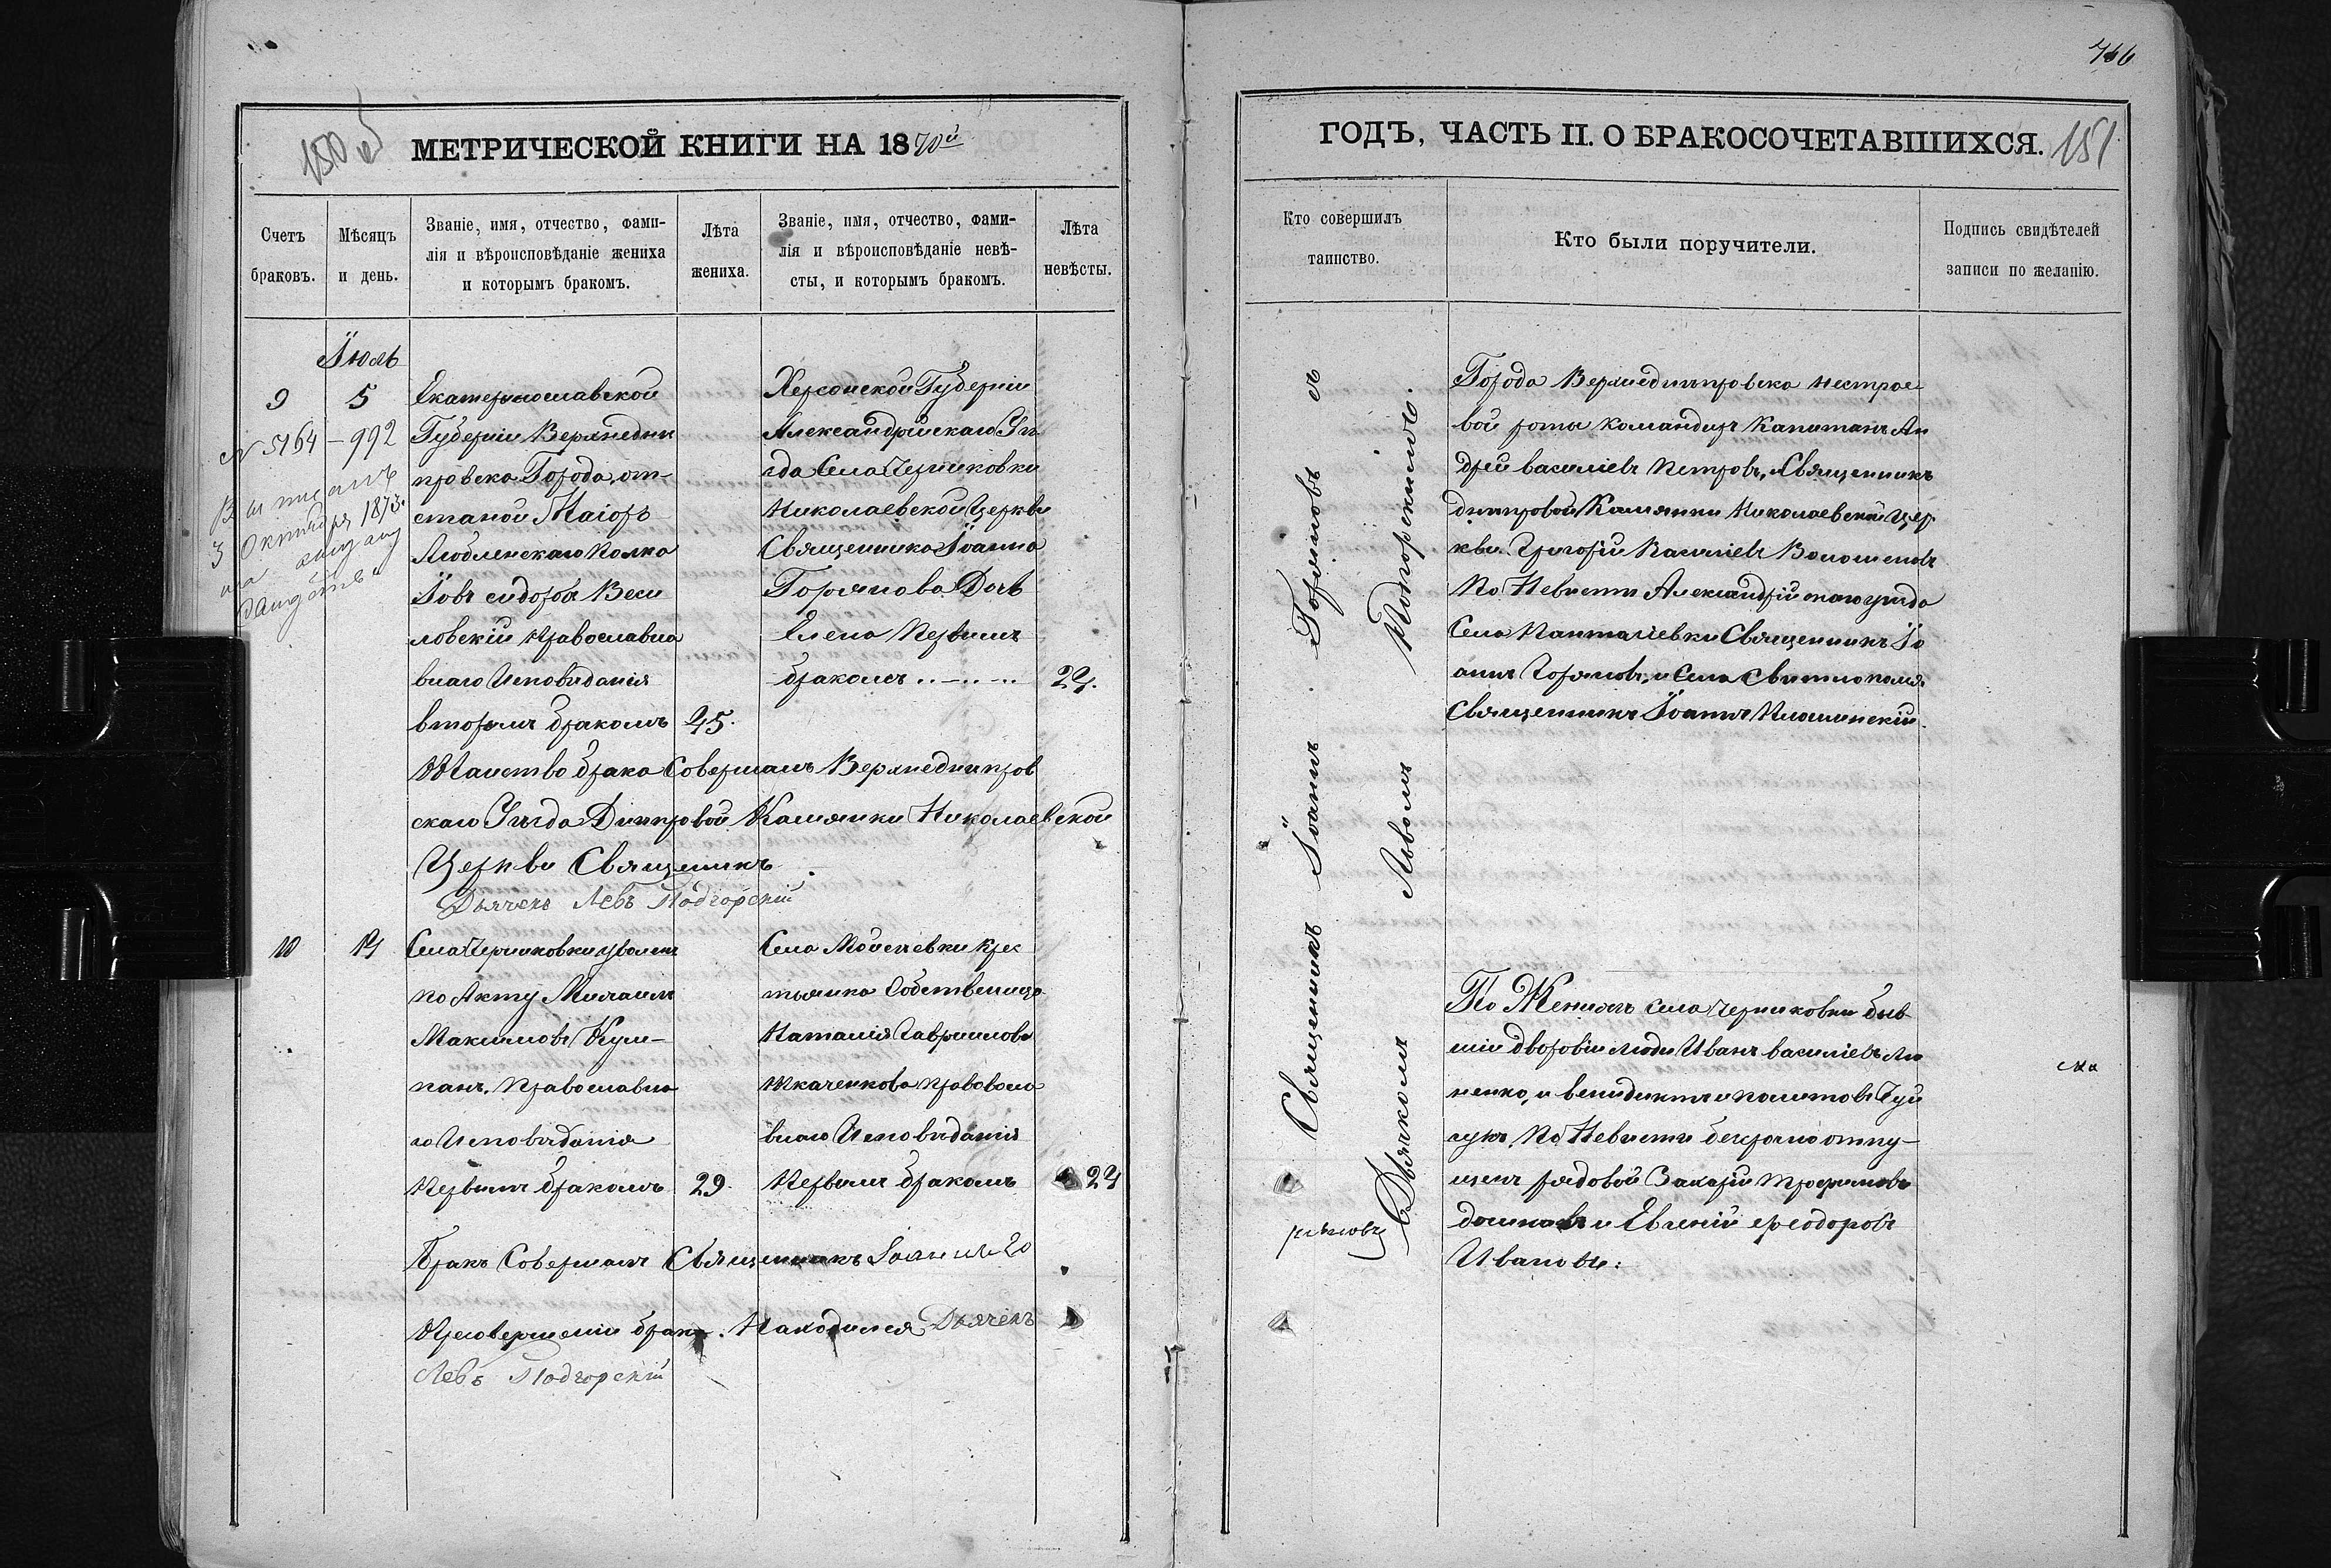 150 об
МЕТРИЧЕСКОЙ КНИГИ НА 1870й
Счетъ браковъ.
Мѣсяцъ и день.
Званіе, имя, отчество, фами-
лія и вѣроисповѣданіе жениха
и которымъ бракомъ.
Лѣта жениха.
Званіе, имя, отчество, фами-
лія и вѣроисповѣданіе невѣ-
сты, и которымъ бракомъ.
Лѣта невѣсты.
Іюль
9
5
№ 5164 – 992
3 Октября 1873.
Екатеринославской
Губерніи Верхнедни
провска Города, от-
ставной Маіоръ
Люблинскаго Полка
Іовъ Сидоровъ Веси
ловскій Православна
внаго Исповѣданія
вторымъ бракомъ
45.
Херсонской Губерніи
Александрійскаго Уѣ
зда Села Чериковки
Николаевской Церкви
Священника Іоанна
Горянова Дочь
Елена Первымъ
бракомъ
24.
Таинство брака Совершалъ Верхнеднипров
скаго Уѣзда Днипровой Камянки Николаевской
Церкви Священникъ
Дьячекъ Левъ Подгорскій
10
Села Чериковки уволен
по Акту Михаилъ
Максимовъ Куш-
панъ. Православна
го Исповѣданія
Первымъ бракомъ
29.
Села Мойсеевки Крес
тьянка Собственица
Наталія Гаврилова
Ткаченкова Правосла
внаго Исповѣданія
Первымъ бракомъ
24
Бракъ Совершалъ Священникъ Іоаннъ Го
При совершеніи брака. Находился Дьячекъ
Левъ Подгорскій
766
ГОДЪ, ЧАСТЬ II. О БРАКОСОЧЕТАВШИХСЯ.
151
Кто совершилъ таинство.
Кто были поручители.
Подпись свидѣтелей
записи по желанію.
Священникъ Іоаннъ Горяновъ
съ Дьячкомъ Львомъ Подгорскимъ.
ряновъ
Города Верхнеднипровска нестрое
вой роты командиръ Капитанъ Ан
дрей Василіевъ Петровъ, Священникъ
Днипровой Камянки Николаевской Цер
кви Григорій Василіевъ Волошеновъ
По Невисти Александрійскаго уѣзда
Села Панталѣевки Священникъ Іо
аннъ Горяновъ, и Села Свитлополя.
Священникъ Іоаннъ
По Жениху села Чериковки быв
шіи дворовіи люди Иванъ Василіевъ
ненко, и
По Невисти безсрочно отпу-
щен рядовой Захарій Трофимовъ
и Евгеній Феодоровъ
Ивановъ.